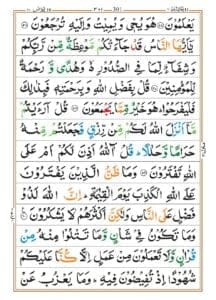 يَعْلَمُوْنَ ۝ هُوَ يُحْيٖ وَيُمِيْتُ وَاِلَيْهِ تُرْجَعُوْنَ ۝
يٰۤاَيُّهَا النَّاسُ قَدْ جَآءَتْكُمْ مَّوْعِظَةٌ مِّنْ رَّبِّكُمْ
وَشِفَآءٌ لِّمَا فِي الصُّدُوْرِ ۙ وَهُدًى وَّرَحْمَةٌ
لِّلْمُؤْمِنِيْنَ ۝ قُلْ بِفَضْلِ اللّٰهِ وَبِرَحْمَتِهٖ فَبِذٰلِكَ
فَلْيَفْرَحُوْا ؕ هُوَ خَيْرٌ مِّمَّا يَجْمَعُوْنَ ۝ قُلْ اَرَءَيْتُمْ
مَّآ اَنْزَلَ اللّٰهُ لَكُمْ مِّنْ رِّزْقٍ فَجَعَلْتُمْ مِّنْهُ
حَرَامًا وَّحَلٰلًا ؕ قُلْ آٰللّٰهُ اَذِنَ لَكُمْ اَمْ عَلَى
اللّٰهِ تَفْتَرُوْنَ ۝ وَمَا ظَنُّ الَّذِيْنَ يَفْتَرُوْنَ
عَلَى اللّٰهِ الْكَذِبَ يَوْمَ الْقِيٰمَةِ ؕ اِنَّ اللّٰهَ لَذُوْ
فَضْلٍ عَلَى النَّاسِ وَلٰكِنَّ اَكْثَرَهُمْ لَا يَشْكُرُوْنَ ۝
وَمَا تَكُوْنُ فِيْ شَاْنٍ وَّمَا تَتْلُوْا مِنْهُ مِنْ
قُرْاٰنٍ وَّلَا تَعْمَلُوْنَ مِنْ عَمَلٍ اِلَّا كُنَّا عَلَيْكُمْ
شُهُوْدًا اِذْ تُفِيْضُوْنَ فِيْهِ ؕ وَمَا يَعْزُبُ عَنْ